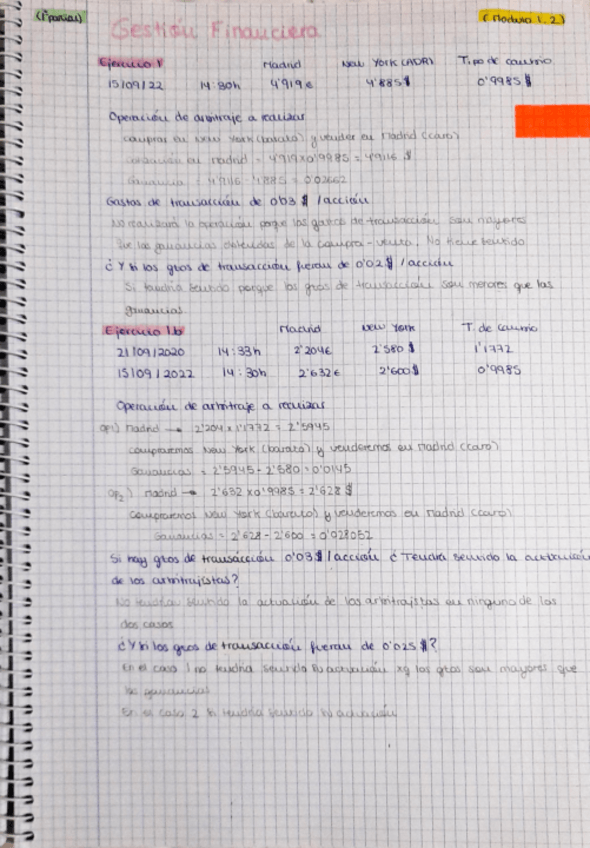 (1º parcial)
(Modulo 1.2)
Gestión Financiera
Ejercicio 1 Madrid New York (ADR) Tipo de cambio
15/09/22 14:30h 4'919€ 4'885$ 0'9985 $
Operación de arbitraje a realizar
comprar en New York (barato) y vender en Madrid (caro)
en Madrid = 4'919x0'9985 = 4'9116 $
Ganancia = 4'9116 - 4'885 = 0'02662
Gastos de transacción de 0'03 $ /acción
No realizará la operación porque los gastos de transacción son mayores
que las ganancias obtenidas de la compra-venta. No tiene sentido
¿Y si los gtos de transacción fueran de 0'02$ /acción
Si tendría sentido porque los gtos de transacción son menores que las
ganancias
Ejercicio 1.b Madrid New York T. de cambio
21/09/2020 14:33h 2'204€ 2'580 $ 1'1772
15/09/2022 14:30h 2'632€ 2'600$ 0'9985
Operación de arbitraje a realizar
op1) Madrid → 2'204 x 1'1772 = 2'5945
compraremos New York (barato) y venderemos en Madrid (caro)
Ganancias = 2'5945 - 2'580 = 0'0145
op2) Madrid → 2'632 x 0'9985 = 2'628 $
Compraremos New York (barato) y venderemos en Madrid (caro)
Ganancias = 2'628 - 2'600 = 0'028052
Si hay gtos de transacción 0'03$ /acción ¿Tendría sentido la actuación
de los arbitrajistas?
No tendría sentido la actuación de los arbitrajistas en ninguno de los
dos casos
¿Y si los gtos de transacción fueran de 0'025 $?
En el caso 1 no tendría sentido su actuación xq los gtos son mayores que
las ganancias
En el caso 2 si tendría sentido su actuación